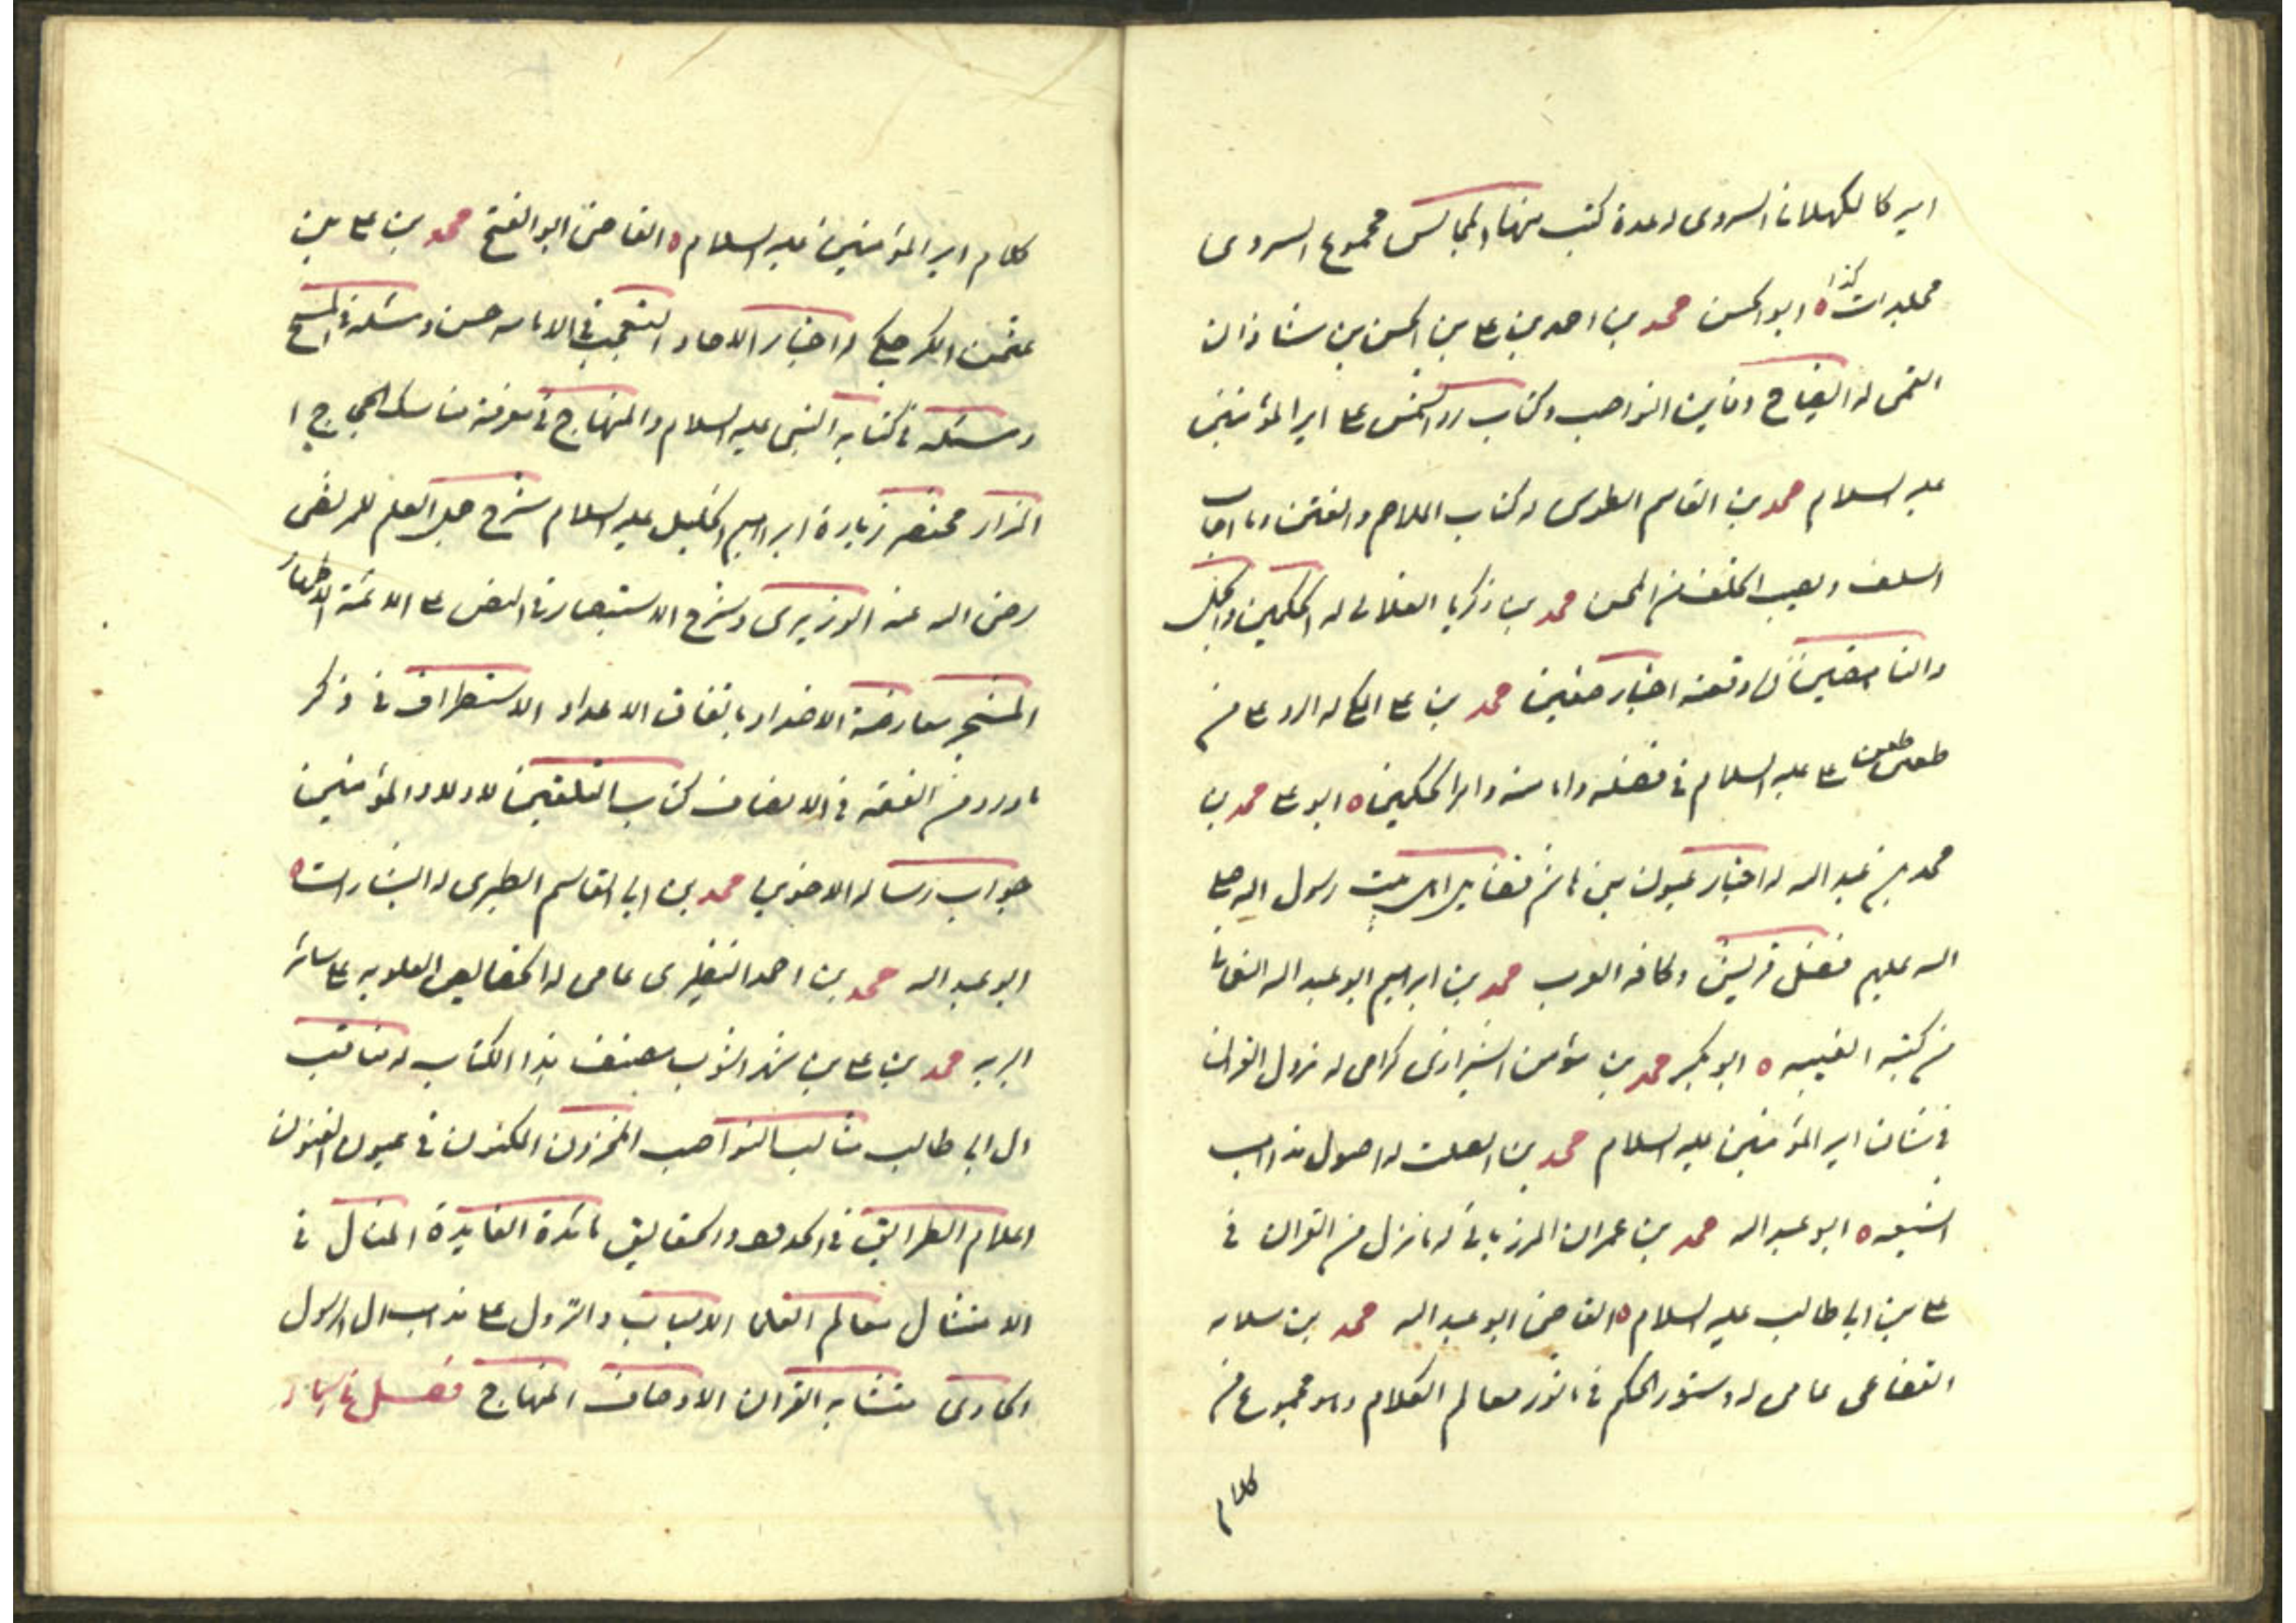 اميركا لكهلان السروى له عدة كتب منها المجالس مجموع السروى
كذا
مجلدات ه ابو الحسن محمد بن احمد بن على بن الحسن بن شاذان
القمى له ايضاح دفاين النواصب وكتاب رد الشمس على امير المؤمنين
عليه السلام محمد بن القاسم الطوسى له كتاب الملاحم والفتن وما اصاب
السلف ويصيب الخلف من المحن محمد بن زكريا الغلابى له الحكمين والجمل
والناصبين وقعة اخبار صفين محمد بن على له الرد على من
طعن على عليه السلام فى فضله وامامته وامر الحكمين ه ابو على محمد بن
محمد بن عبد الله له اخبار عيون بنى هاشم فضايل اهل بيت رسول الله صلى
الله عليهم فضل قريش وكافة العرب محمد بن ابراهيم ابو عبد الله النعمانى
من كتبه الغيبه ه ابو بكر محمد بن مؤمن الشيرازى كرامى له نزول القران
فى شان امير المؤمنين عليه السلام محمد بن الصلت له اصول مذاهب
الشيعه ه ابو عبد الله محمد بن عمران المرزبانى له ما نزل من القران فى
على بن ابى طالب عليه السلام ه القاضى ابو عبد الله محمد بن سلامه
القضاعى عامى له دستور الحكم فى ماثور معالم الكلام وهو مجموع من
كلام
كلام امير المؤمنين عليه السلام ه القاضى ابو الفتح محمد بن على بن
عثمن الكراجكى له اخبار الاحاد التعجب فى الامامه حسن ومسئله فى المسح
ومسئله فى كتابه النبى عليه السلام والمنهاج فى معرفة مناسك الحجاج ا
المزار مختصر زيارة ابراهيم الخليل عليه السلام شرح جمل العلم للمرتضى
رضى الله عنه الوزيرى وشرح الاستبصار فى النص على الائمة الاطهار
المشجر معارضة الاضداد باتفاق الاعداد الاستطراف فى ذكر
ما ورد من الفقه فى الانصاف كتاب التلقين لاولاد المؤمنين
جواب رسالة الاخوين محمد بن ابى القاسم الطبرى له البشارات ه
ابو عبد الله محمد بن احمد النطنزى عامى له الخصايص العلويه على ساير
البريه محمد بن على بن شهر اشوب مصنف هذا الكتاب له مناقب
ال ابى طالب مثالب النواصب المخزون المكنون فى عيون الفنون
اعلام الطرايق فى الحدود والحقايق مائدة الفايدة المثال فى
الامثال معالم العلما الاسباب والنزول على مذهب ال الرسول
الحاوى متشابه القران الاوصاف المنهاج فصل فى